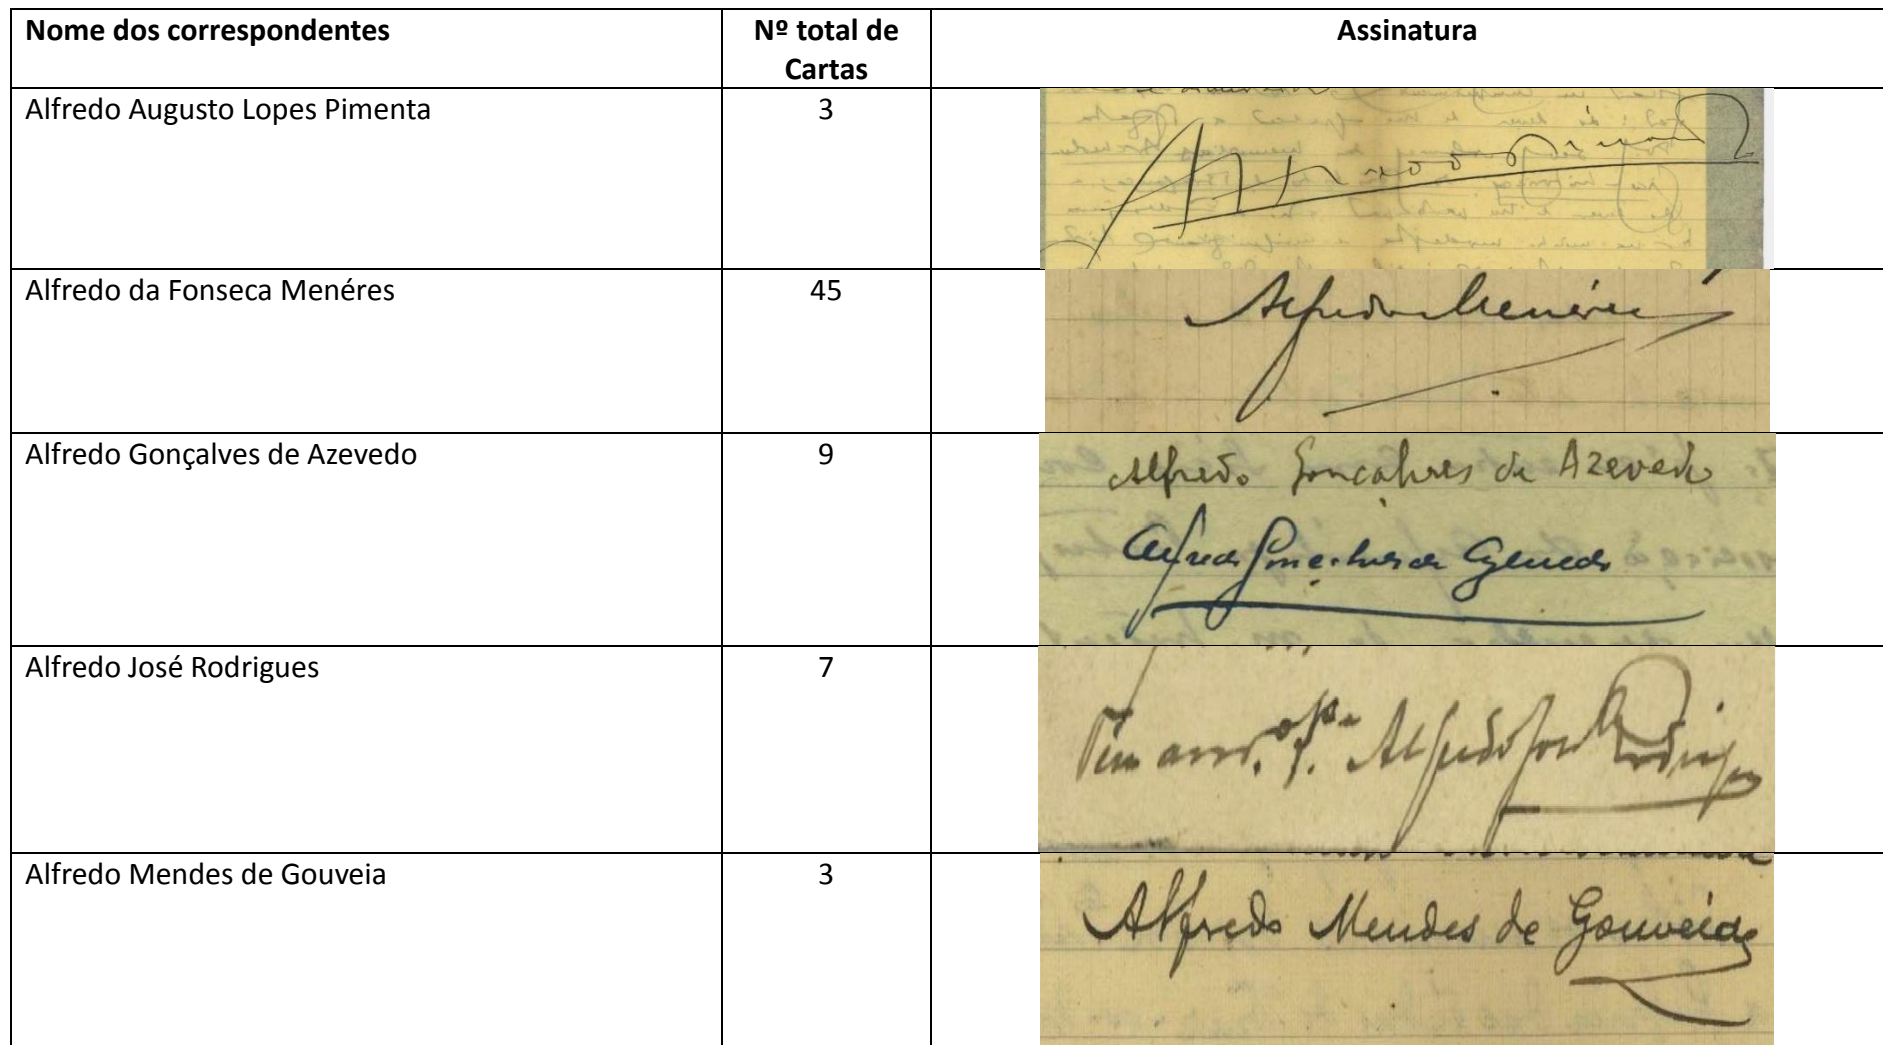 Nome dos correspondentes
Nº total de
Cartas
Assinatura
Alfredo Augusto Lopes Pimenta
3
Alfredo Pimenta
Alfredo da Fonseca Menéres
45
Alfredo Menéres
Alfredo Gonçalves de Azevedo
9
Alfredo Gonçalves de Azevedo
Alfredo Gonçalves de Azevedo
Alfredo José Rodrigues
7
Alfredo José Rodrigues
Alfredo Mendes de Gouveia
3
Alfredo Mendes de Gouveia